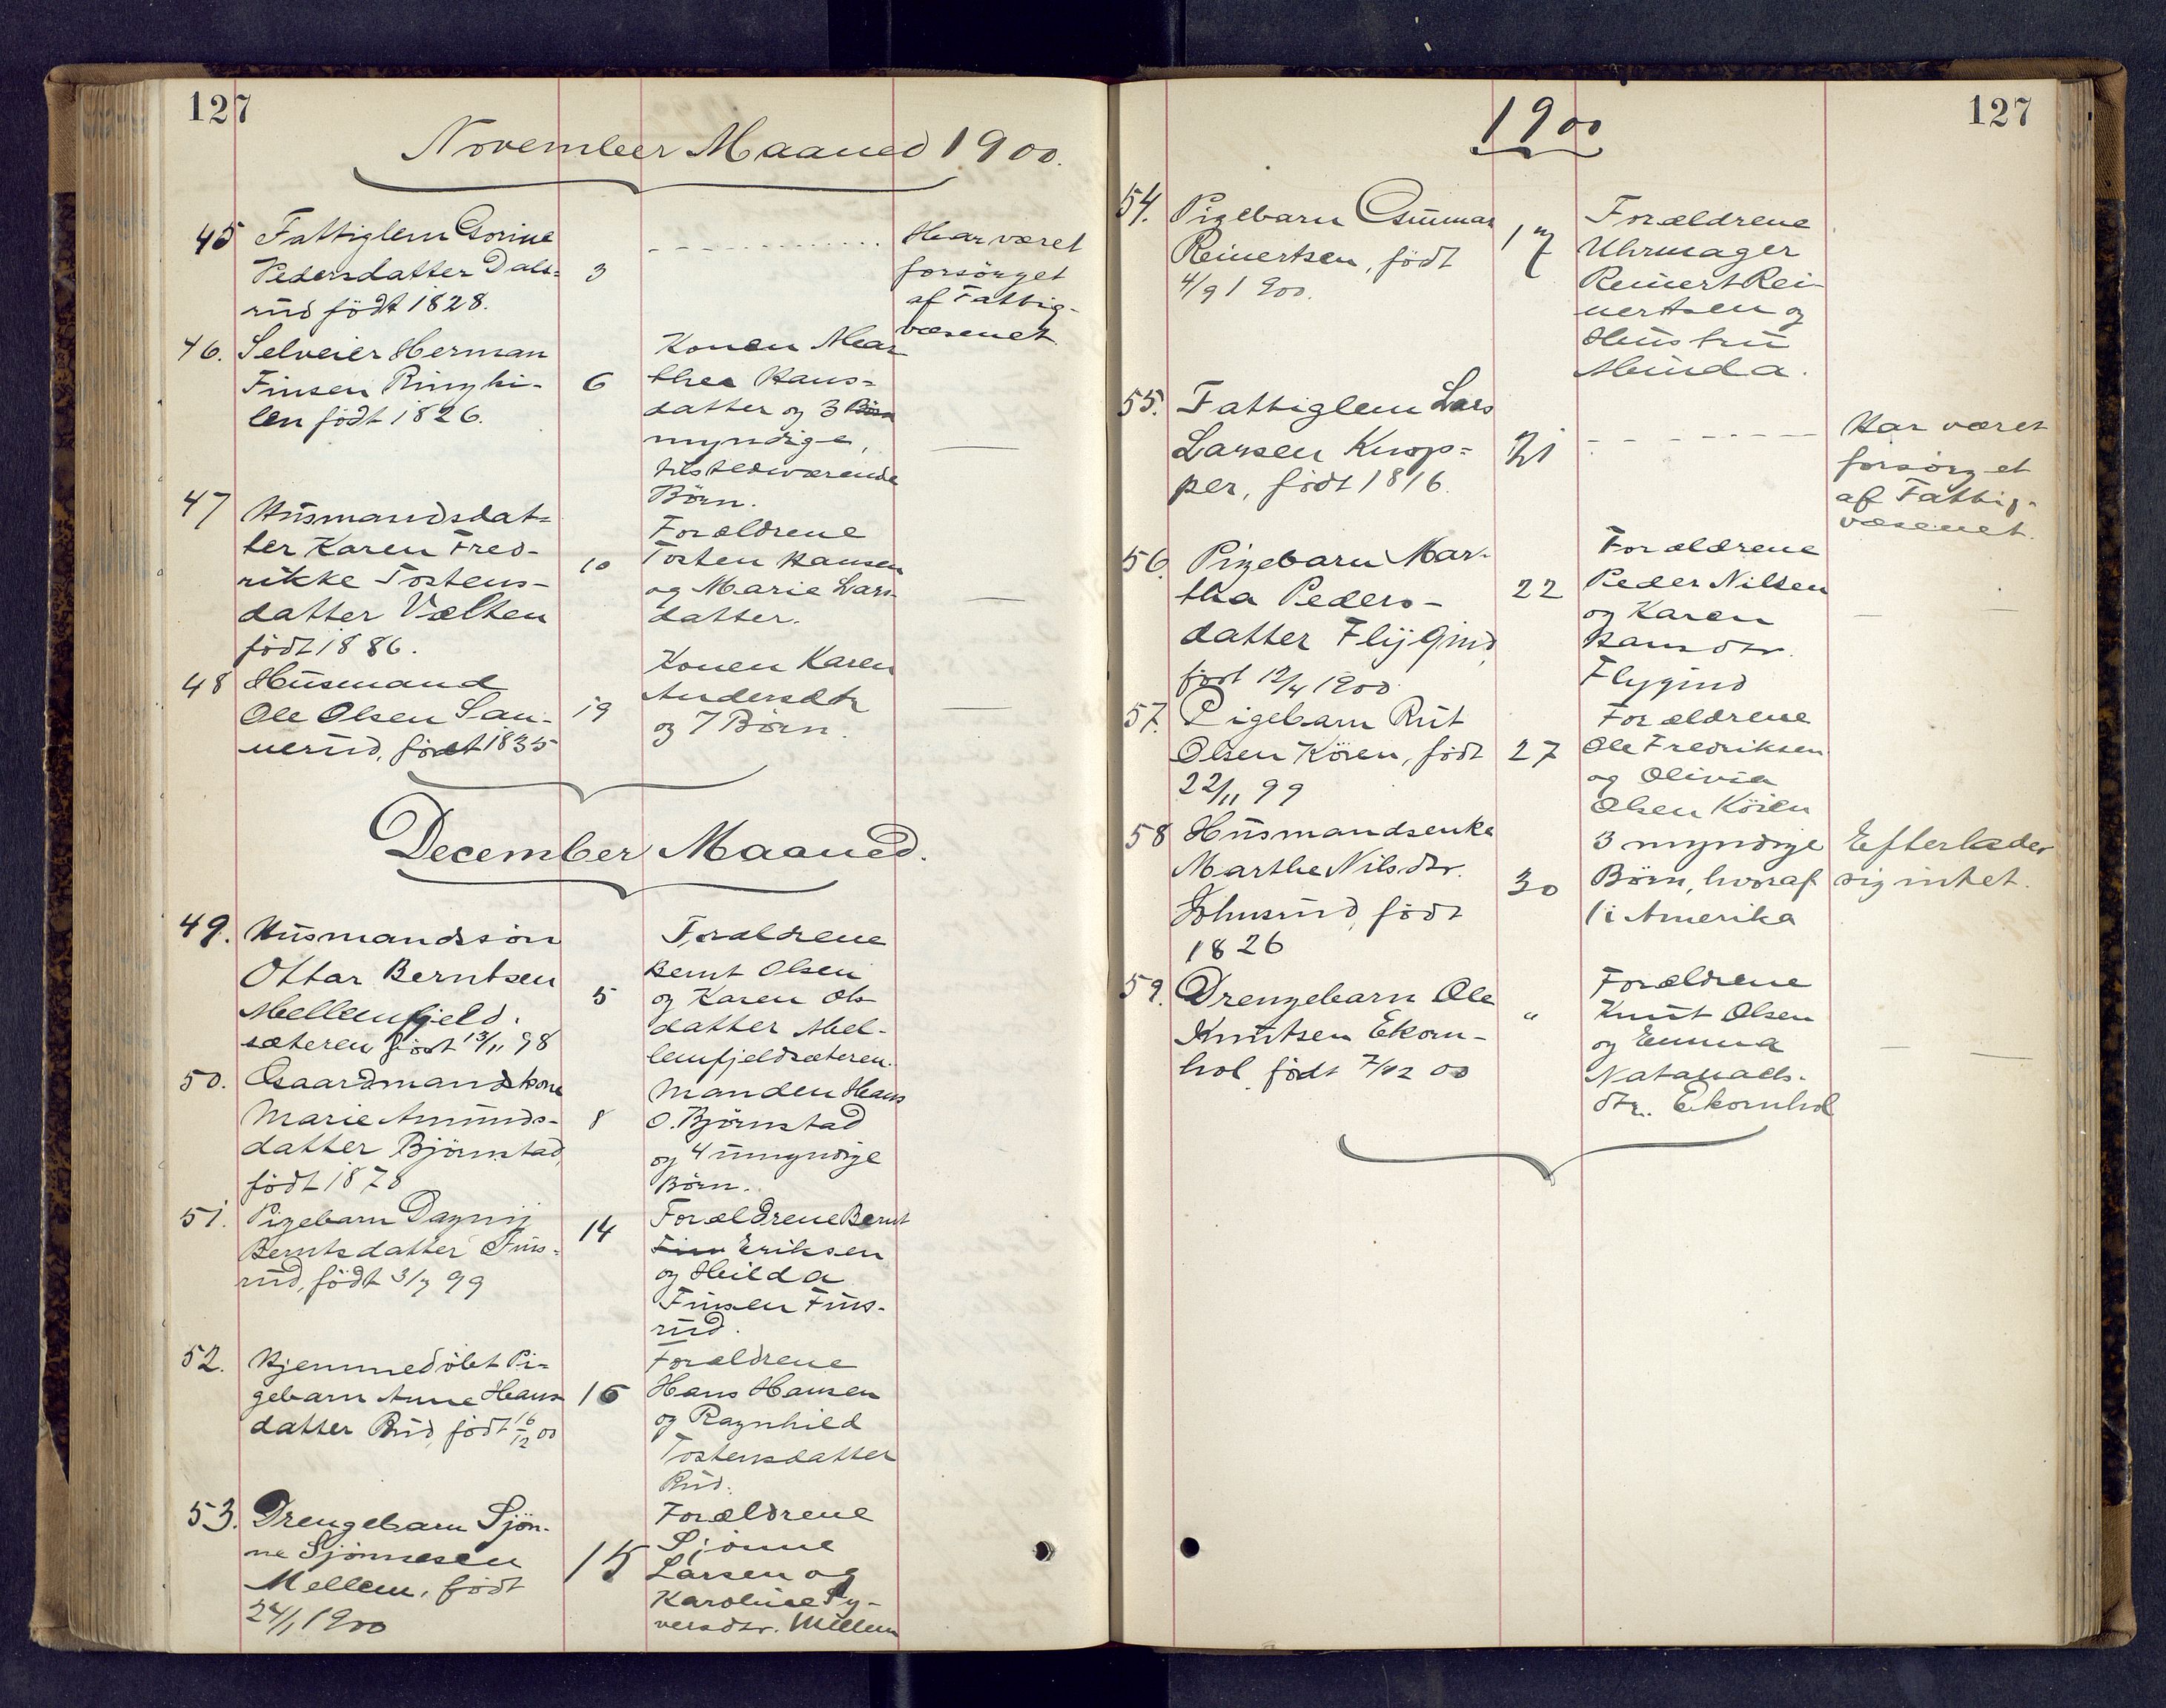 127
November Maaned 1900.
45 Fattiglem Gorine
Pedersdatter Dals=
rud født 1828.
3
Har været
forsørget
af Fattig-
væsenet
46. Selveier Herman
Finsen Ringhi-
len født 1826.
6
Konen Mar
thea Hans=
datter og 3 Börn
myndige,
tilstedeværende
Börn.
47 Husmandsdat=
ter Karen Fred-
rikke Tostens-
datter Vælten
født 1886.
10
Forældrene
Tosten Hansen
og Marie Lars-
datter.
48 Husmand
Ole Olsen San-
nerud, født 1835
19
Konen Karen
Andersdtr
og 7 Börn.
December Maaned.
49. Husmandssön
Ottar Berntsen
Mellemfjeld-
sæteren født 13/11 98
5
Forældrene
Bernt Olsen
og Karen Ols-
datter Mel-
lemfjeldsæteren.
50. Gaardmandskone
Marie Amunds-
datter Björnstad,
født 1878
8
Manden Hans
O. Björnstad
og 4 umyndige
Börn.
51. Pigebarn Dagny
Berntsdatter Fins-
rud, født 3/7 99
14
Forældrene Bernt
Finn Eriksen
og Hilda
Finsen Fins-
rud.
52. Hjemmedöbt Pi-
gebarn Anne Hans
datter Rud, født 16/12 00
16
Forældrene
Hans Hansen
og Ragnhild
Tostensdatter
Rud.
53. Drengebarn Sjön-
ne Sjönnesen
Mellem, født
24/1 1900
15
Forældrene
Sjönne
Larsen og
Karoline Sy-
versdtr. Mellem
127
1900
54. Pigebarn Gunnar
Reinertsen, født
4/9 1900.
17
Forældrene
Uhrmager
Reinert Rei-
nertsen og
Hustru
Minda.
55. Fattiglem Lars
Larsen Knop=
per, født 1816.
21
Har været
forsörget
af Fattig-
væsenet.
56. Pigebarn Mar-
tha Peders-
datter Flygind,
født 12/4 1900
22
Forældrene
Peder Nilsen
og Karen
Hansdtr.
Flygind
57. Pigebarn Rut
Olsen Kören, født
22/11 99
27
Forældrene
Ole Fredriksen
og Olivia
Olsen Kören
58 Husmandsenke
Marthe Nilsdtr.
Johnsrud, født
1826
30
3 myndige
Börn, hvoraf
1 i Amerika
Efterlader
sig intet.
59. Drengebarn Ole
Knutsen Ekorn-
hol født 7/12 00
"
Forældrene
Knut Olsen
og Emma
Natanaels-
dtr. Ekornhol